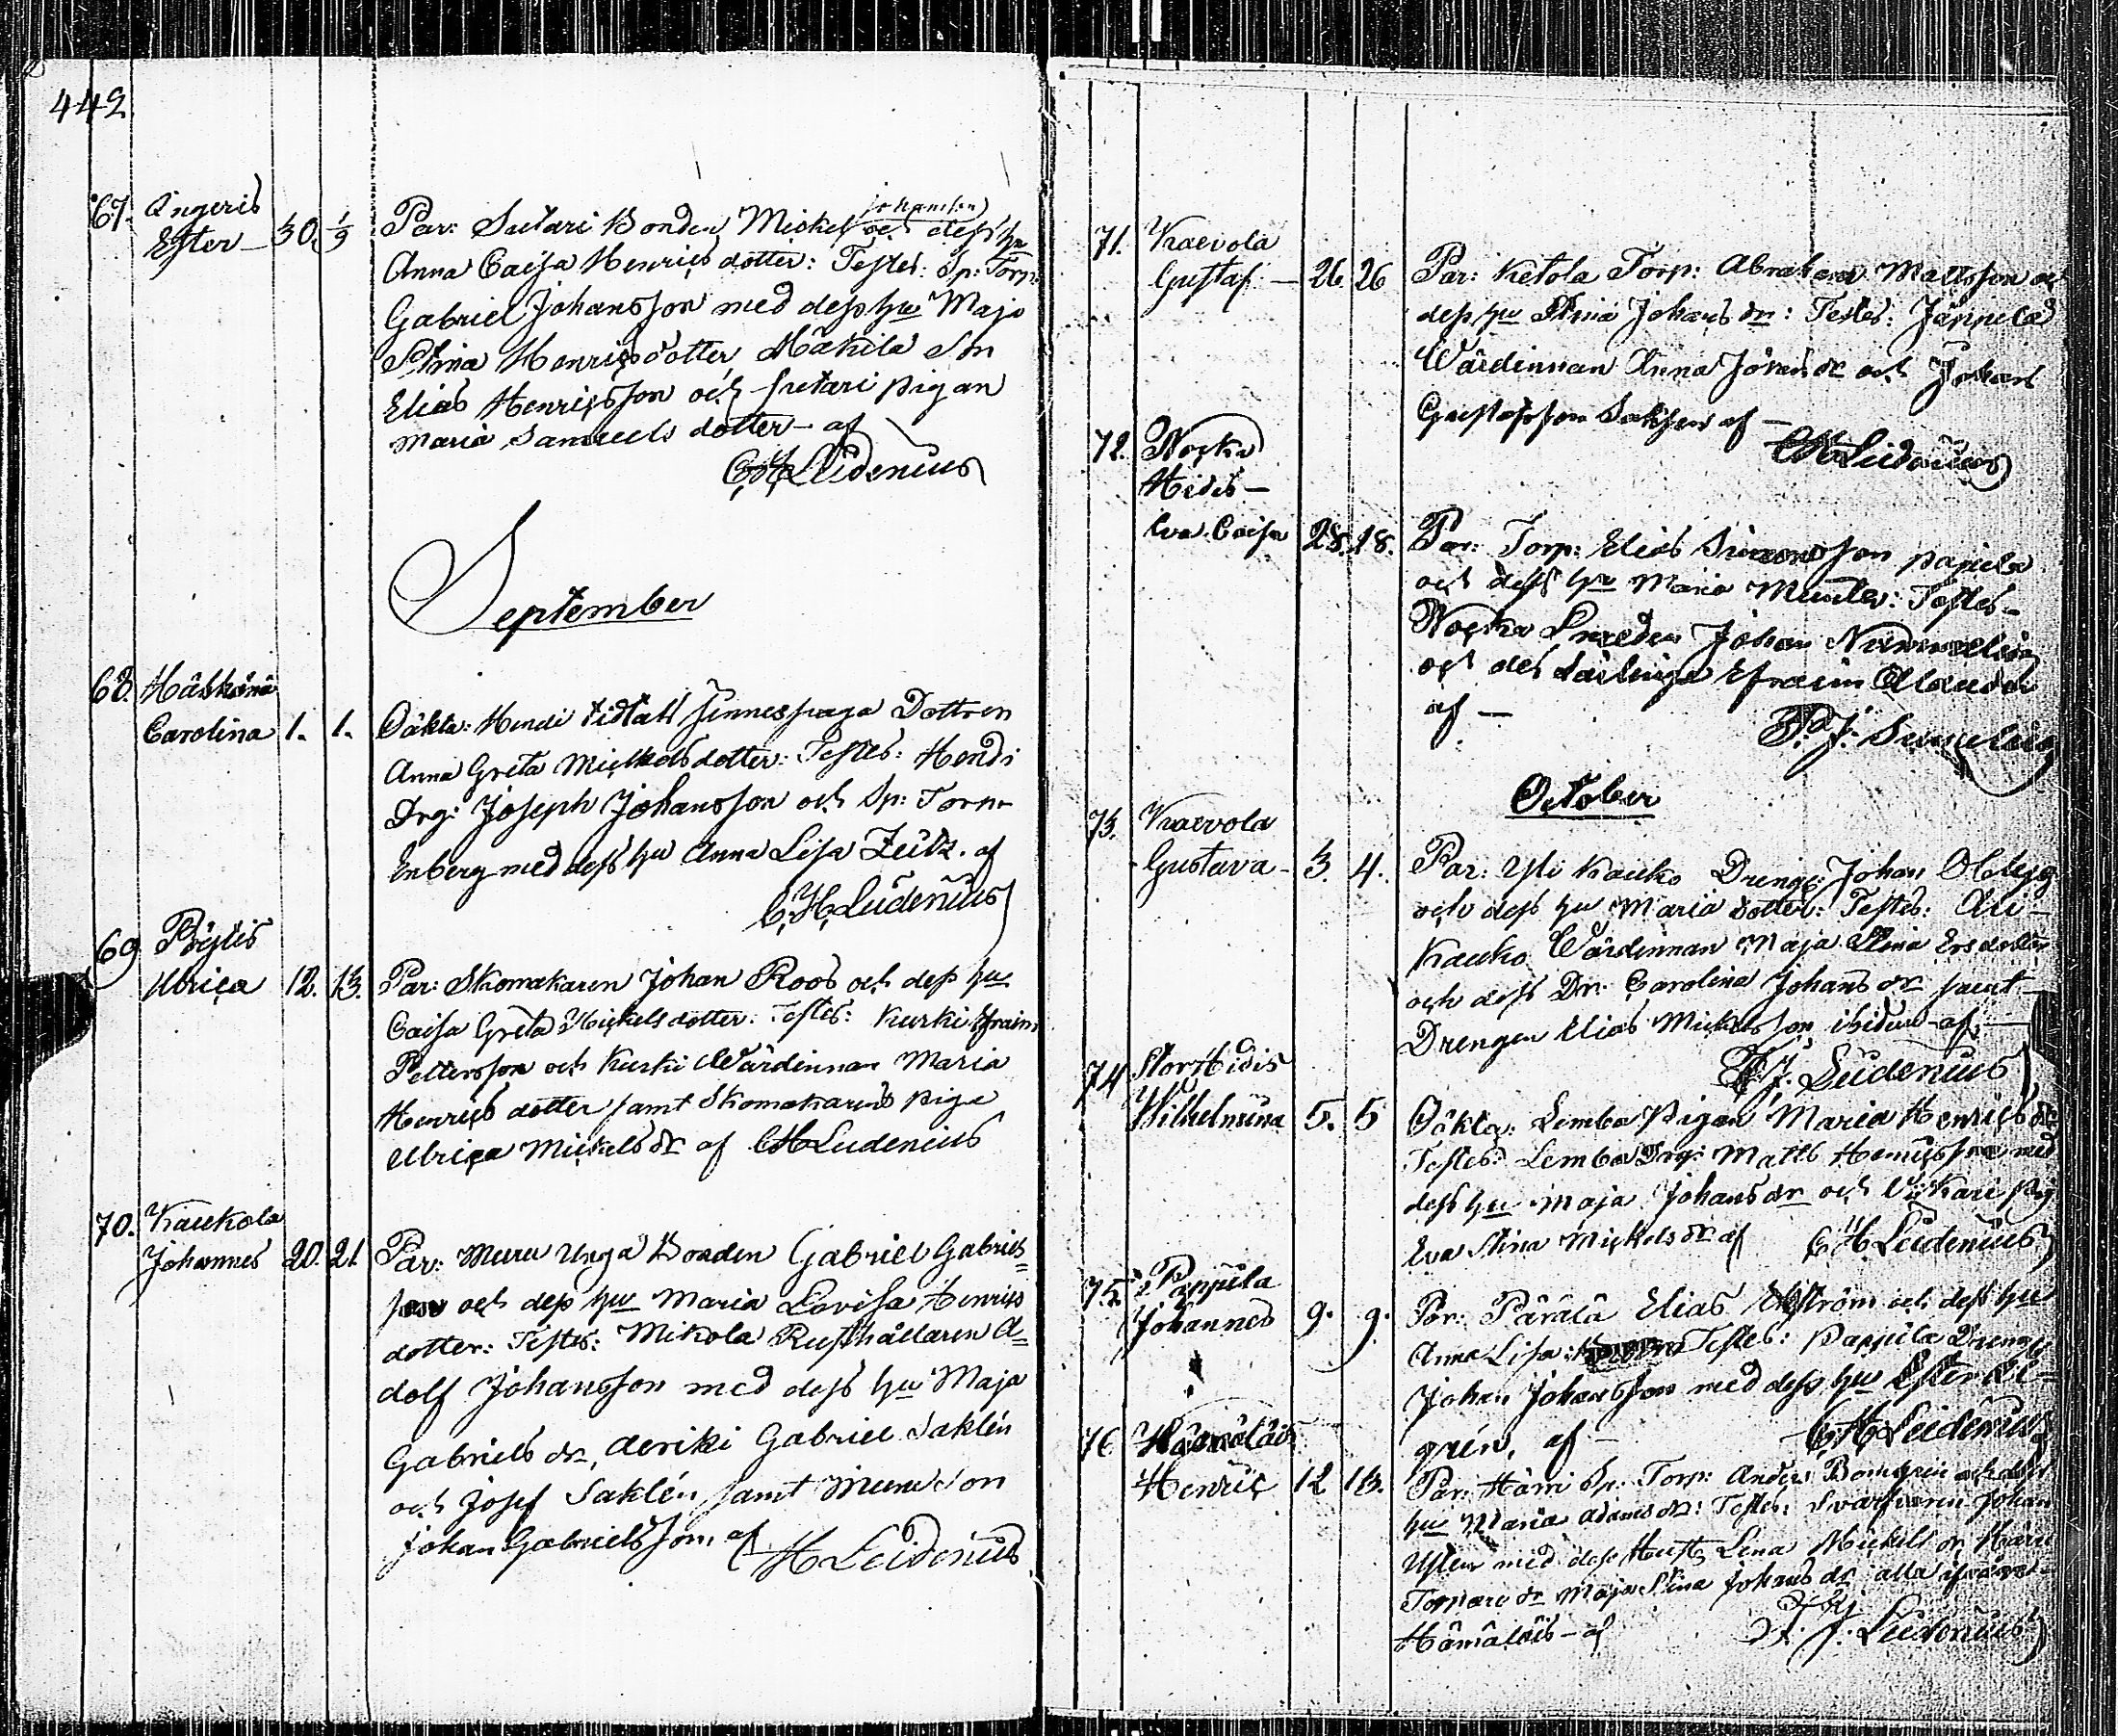 442
67. Ingeris
Ester — 30. 1/9 Par: Sutari Bonden Mickel Johansson och dess hu
Anna Caisa Henrics dotter: Testes: Sp: Torp:
Gabriel Johansson med dess hu Maja
Stina Henricsdotter, Mäkilä Son
Elias Henricsson och Sutari pigan
Maria Samuels dotter — af
C H Lidenius
September
68. Häskänä
Carolina 1. 1. Oäkta: Hendi Dottren
Anna Greta Mickelsdotter: Testes: Hendi
Drg: Joseph Johansson och Sp: Torp
Enberg med dess hu Anna Lisa . af
C. H. Lidenius
69 Pöytis
Ulrica 12. 13. Par: Skomakaren Johan Roos och dess hu
Caisa Greta Mickels dotter: Testes: Kurki Efraim
Pettersson och Kurki Wärdinnan Maria
Henrics dotter samt Skomakarens piga
Ulrica Mickels dr af C H Lidenius
70. Kaukola
Johannes 20. 21. Par: Muru Unga Bonden Gabriel Gabriels=
son och dess hu Maria Lovisa Henrics
dotter: Testes: Mikola Rusthållaren A=
dolf Johansson med dess hu Maja
Gabriels dr, Gabriel Saklén
och Josef Saklén samt Muru Son
Johan Gabrielsson, af C H Lidenius
71. Kaevola
Gustaf — 26 26 Par: Ketola Torp: Abraham Mattsson och
dess hu Stina Johans dr: Testes: Jäppilä
Wärdinnan Anna Johans dr och Johan
Gustafsson af —
C H Lidenius
72. Nocka
Hidis —
Eva Caisa 28. 18. Par: Torp: Elias Simonsson
och dess hu Maria : Testes —
Nocka Smeden Johan
och des Efraim
af —
October
73. Kaevola
Gustava — 3. 4. Par: Yli Kauko Dreng: Johan
och dess hu Maria dotter: Testes: Ali —
Kauko Wärdinnan Maja Stina Ersdotter
och dess Dr. Carolina Johans dr samt
Drengen Elias Mickelsson ibidem — af —
F. J. Lidenius
74 Stor Hidis
Wilhelmina 5. 5 Oäkta: Lemba Pigan Maria Henrics dr
Testes: Lemba Drg: Matts Henricsson med
dess hu Maja Johans dr och Wikari Pig
Eva Stina Mickels dr af C H Lidenius
75. Pappila
Johannes 9. 9. Par: Pärälä Elias Ekström och dess hu
Anna Lisa: Testes: Pappila Dreng
Johan Johansson med dess hu Ester El=
grén, af — C H Lidenius
76 Hämäläis
Henric 12 13. Par: Härri Sp: Torp: Anders Bomgrén och dess
hu Maria Adams dr: Testes: Svarfvaren Johan
med dess Hust. Lena Mickels dr Härri
Torpare dr Maja Stina Johans dr alla ifrån
Hämäläis — af F. J. Lidenius